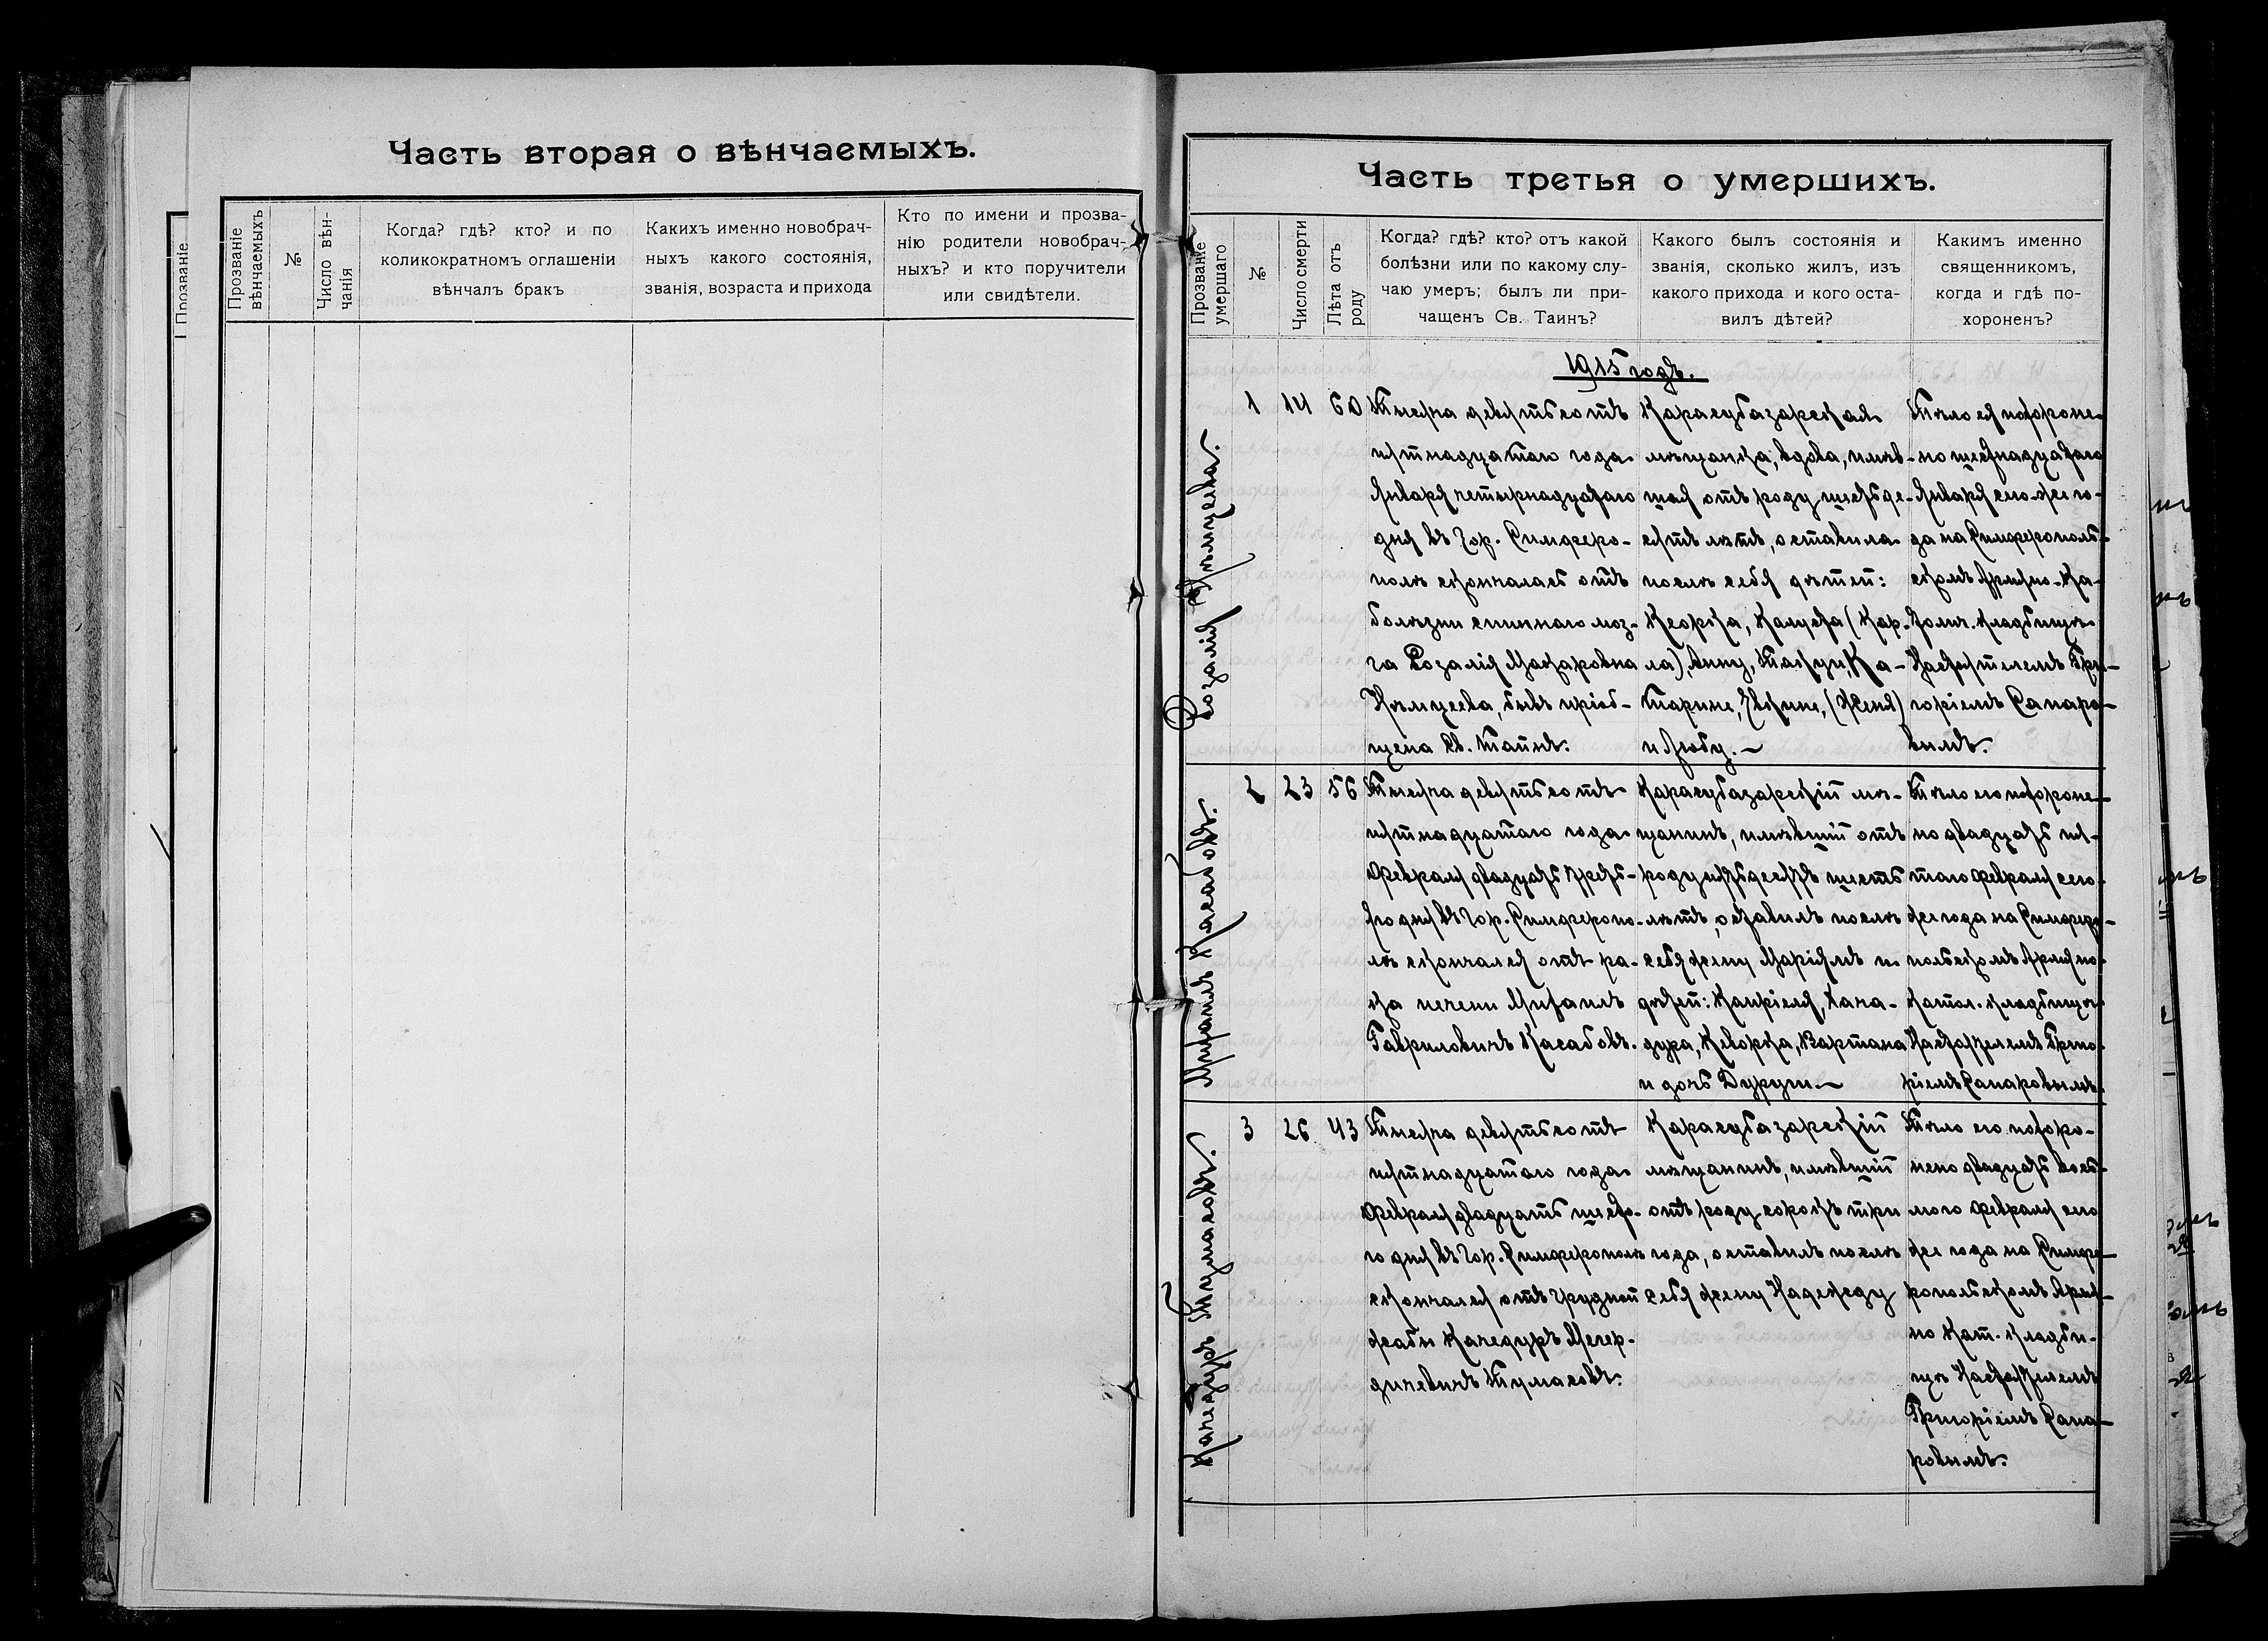 Часть вторая о вѣнчаемыхъ.
Прозваніе
Прозваніе
вѣнчаемыхъ
№
Число вѣн-
чанія
Когда? гдѣ? кто? и по
коликократномъ оглашеніи
вѣнчалъ бракъ
Какихъ именно новобрач-
ныхъ какого состоянія,
званія, возраста и прихода
Кто по имени и прозва-
нію родители новобрач-
ныхъ? и кто поручители
или свидѣтели.
Часть третья о умершихъ.
Прозваніе
умершаго
№
Число смерти
Лѣта отъ
роду
Когда? гдѣ? кто? отъ какой
болѣзни или по какому слу-
чаю умеръ; былъ ли при-
чащенъ Св. Таинъ?
Какого былъ состоянія и
званія, сколько жилъ, изъ
какого прихода и кого оста-
вилъ дѣтей?
Какимъ именно
священникомъ,
когда и гдѣ по-
хороненъ?
1915 годъ.
Розалія Нѣмцеева.
1
14
60
Тысяча девятьсотъ
пятнадцатаго года
Января четырнадцатаго
дня въ Гор. Симферо-
полѣ скончалась отъ
болѣзни спиннаго моз-
га Розалія Макаровна
Нѣмцеева, бывъ пріоб-
щена Св. Таинъ.
Карасубазарская
мѣщанка, вдова, имѣв-
шая отъ роду шестьде-
сятъ лѣтъ, оставила
послѣ себя дѣтей:
Кеорка, Калуста (Кар-
ла), Анну, Такуи, Ка-
тарине, Евгине, (Женя)
и Любу.
Тѣло ея похороне-
но шестнадцатаго
Января сего-же го-
да на Симферополь-
скомъ Армяно-Ка-
толич. кладбищѣ
Настоятелемъ Гри-
горіемъ Сапаро-
вымъ.
Михаилъ Касабовъ.
2
23
56
Тысяча девятьсотъ
пятнадцатаго года
Февраля двадцать треть-
яго дня въ Гор. Симферопо-
лѣ скончался отъ ра-
ка печени Михаилъ
Гавриловичъ Касабовъ.
Карасубазарскій мѣ-
щанинъ, имѣвшій отъ
роду пятьдесятъ шесть
лѣтъ, оставилъ послѣ
себя жену Маріямъ и
дѣтей: Капріеля, Хача-
дура, Кеворка, Вартана
и дочь Дуруги.
Тѣло его похороне-
но двадцать пя-
таго Февраля сего-
же года на Симферо-
польскомъ Армяно-
Катол. кладбищѣ
Настоятелемъ Григо-
ріемъ Сапаровымъ.
Качедуръ Тумасовъ.
3
26
43
Тысяча девятьсотъ
пятнадцатаго года
Февраля двадцать шесто-
го дня въ Гор. Симферополѣ
скончался отъ грудной
жабы Качедуръ Мегер-
дичевичъ Тумасовъ.
Карасубазарскій
мѣщанинъ, имѣвшій
отъ роду сорокъ три
года, оставилъ послѣ
себя жену Надежду
Тѣло его похоро-
нено двадцать вось-
мого Февраля сего
же года на Симфе-
ропольскомъ Армя-
но Кат. кладби-
щѣ Настоятелемъ
Григоріемъ Сапа-
ровымъ.